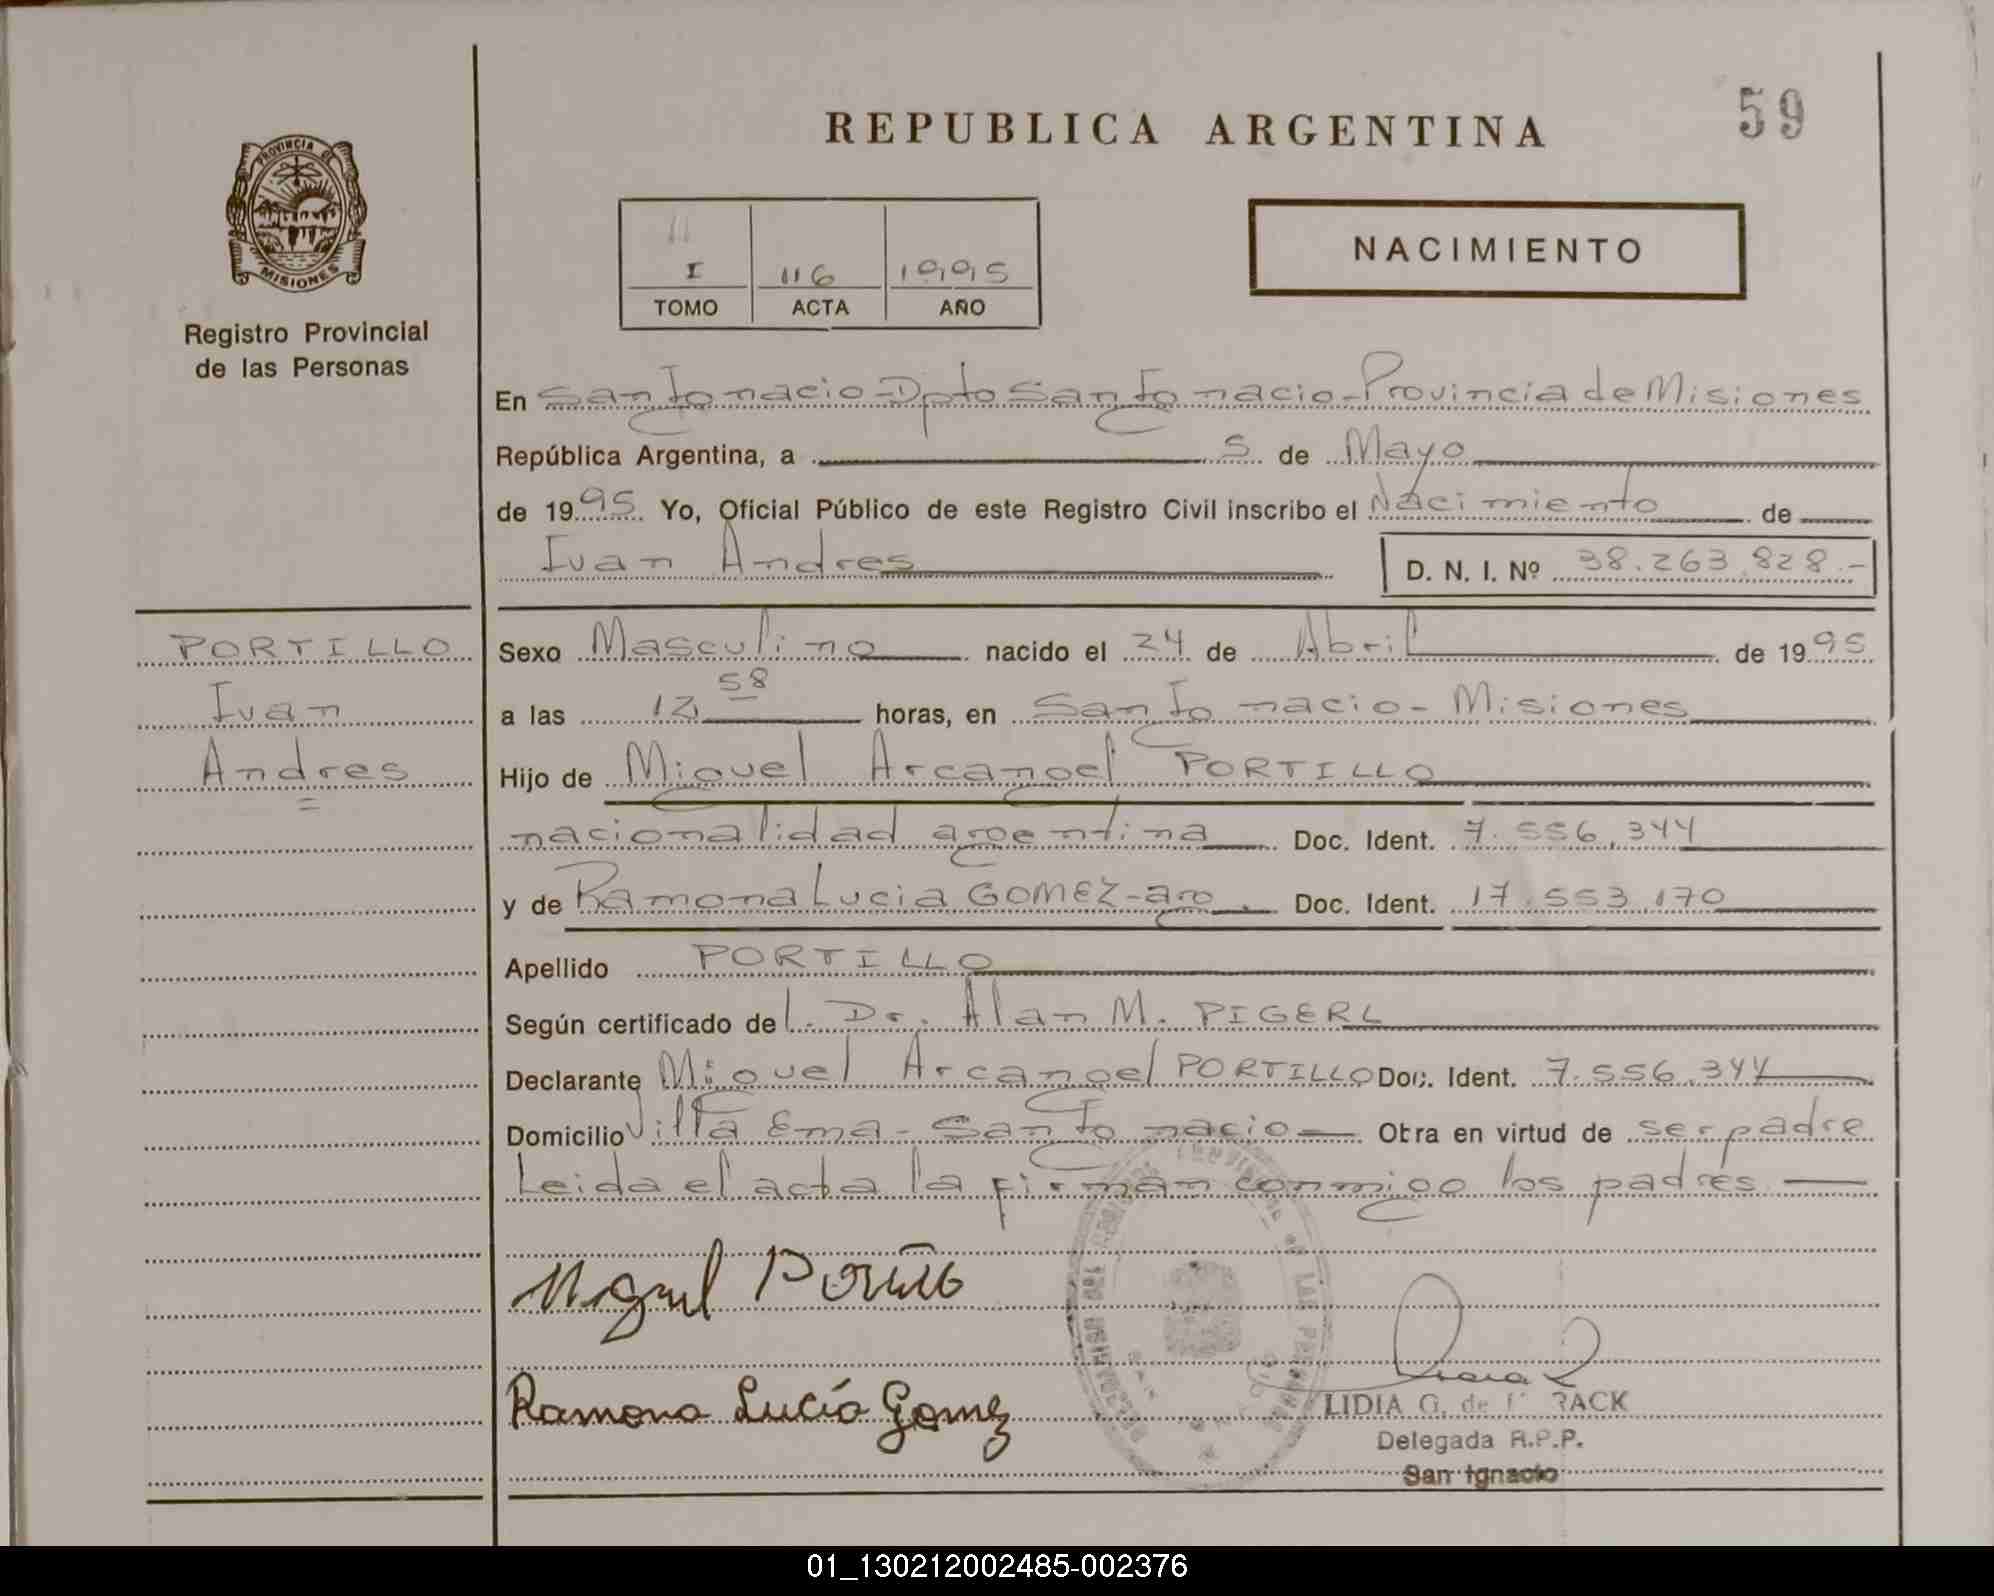 59
REPUBLICA ARGENTINA
PROVINCIA DE
MISIONES
Registro Provincial
de las Personas
NACIMIENTO
I 116 1995
TOMO ACTA AÑO
En San Ignacio - Dpto San Ignacio - Provincia de Misiones
República Argentina, a 5 de Mayo
de 1995 Yo, Oficial Público de este Registro Civil inscribo el Nacimiento de
Ivan Andres D. N. I. Nº 38.263.828.-
PORTILLO
Ivan
Andres
Sexo Masculino nacido el 24 de Abril de 1995
a las 12 58 horas, en San Ignacio - Misiones
Hijo de Miguel Arcangel PORTILLO
nacionalidad argentina Doc. Ident. 7.556.344
y de Ramona Lucia GOMEZ - arg. Doc. Ident. 17.553.170
Apellido PORTILLO
Según certificado del Dr. Alan M. PIGERL
Declarante Miguel Arcangel PORTILLO Doc. Ident. 7.556.344
Domicilio Villa Ema - San Ignacio Obra en virtud de ser padre
Leida el acta la firman conmigo los padres
Miguel Portillo
Ramona Lucía Gomez
LIDIA G. de
Delegada R.P.P.
San Ignacio
01_130212002485-002376